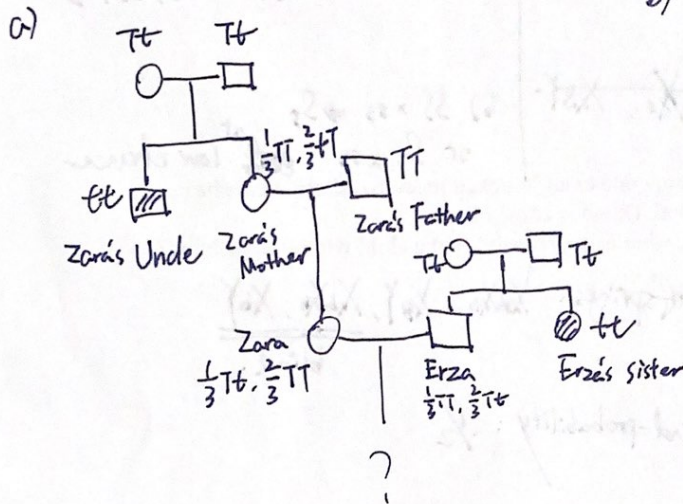 a)
Tt Tt
1/3 TT, 2/3 tT
TT
tt
Zara's Uncle
Zara's Mother
Zara's Father
Tt Tt
Zara
1/3 Tt, 2/3 TT
Erza
1/3 TT, 2/3 Tt
tt
Erza's sister
?